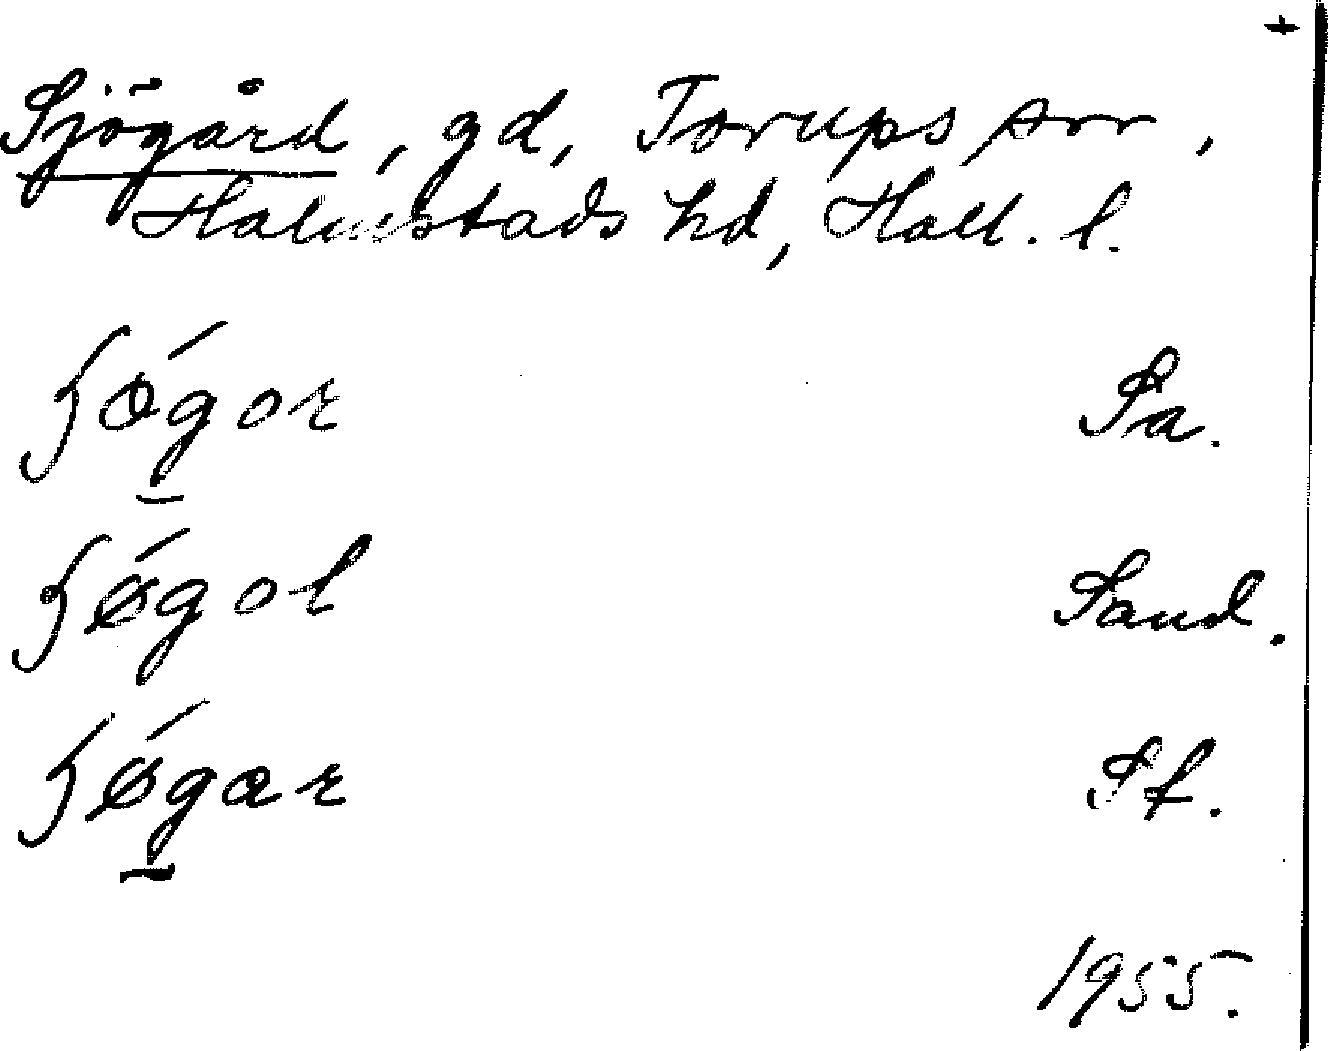 +
Sjögård, gd, Torups snr,
Halmstads hd, Hall. l.
ʃøgor Sa.
ʃøgol Sand.
ʃøgar Sf.
1955.